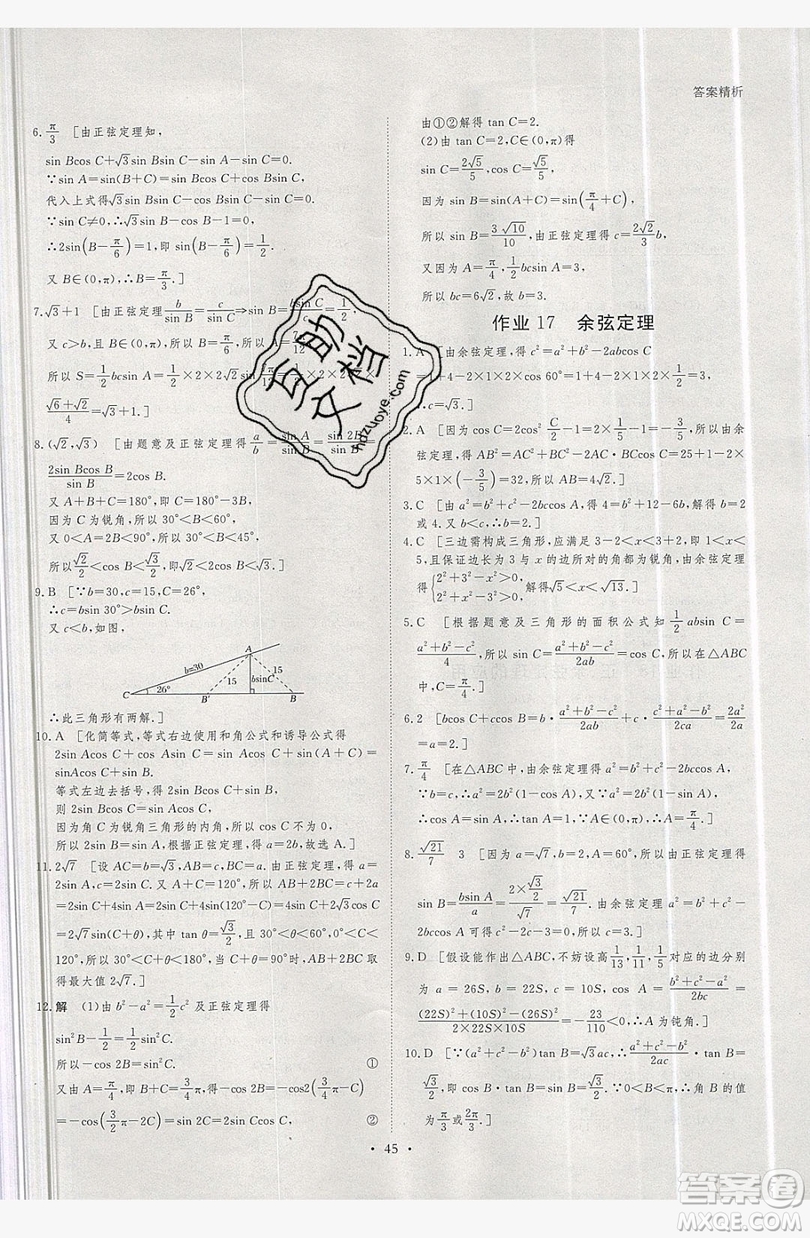 答案精析
6. π/3 [由正弦定理知,
sin Bcos C+√3sin Bsin C-sin A-sin C=0.
∵sin A=sin(B+C)=sin Bcos C+cos Bsin C
代入上式得√3sin Bsin C-cos Bsin C-sin C=0.
∵sin C≠0,∴√3sin B-cos B-1=0.
∴2sin(B-π/6)=1,即sin(B-π/6)=1/2.
又B∈(0,π),∴B=π/3.]
7. √3+1 [由正弦定理b/sin B=c/sin C⇒sin B=bsin C/c=1/2,
又c>b,且B∈(0,π),所以B=π/6,所以A=7π/12,
所以S=1/2 ×2×2√2sin A=1/2×2×2√2×
(√6+√2)/4=√3+1.]
8. (√2,√3) [由题意及正弦定理得a/b=sin A/sin B=sin 2B/sin B=
2sin Bcos B/sin B=2cos B.
又A+B+C=180°,即C=180°-3B
因为C为锐角,所以30°<B<60°,
又0<A=2B<90°,所以30°<B<45°,
所以√2/2<cos B<√3/2,所以√2<2cos B<√3.]
9. B [∵b=30,c=15,C=26°,
∴c=bsin 30°>bsin C.
又c<b,如图:
A
b=30
bsinC
15
15
26°
C
B′
B
∴此三角形有两解.]
10. A [化简等式,等式右边使用和角公式和诱导公式得
2sin Acos C+cos Asin C=sin(A+C)+
sinAcos C+sin B.
等式左边去括号,得
则2sin Bcos C=sin Acos C,
因为角C为锐角三角形的内角,所以cos C不为0.
所以2sin B=sin A,根据正弦定理变形,得a=2b,故选A.]
11. 2√7 [设AC=b=√3,AB=c,BC=a.由正弦定理得
2sin A=a,2sin C=c,所以AB+2BC=c+2a=
2sin C+4sin A=2sin C+4sin(120°-C)
又因为A+C=120°,所以AB+2BC=4sin C+2√3cos C
=2√7sin(C+θ),其中tan θ=√3/2,且30°<θ<60°,C<
120°,所以30°<C+θ<180°,当C+θ=90°时,AB+2BC取
得最大值2√7.]
12. 解 (1)由b²-a²=1/2 c²及正弦定理得
sin²B-1/2=1/2sin²C.
所以-cos 2B=sin²C. ①
又由A=π/4,即B+C=3/4π,得-cos2B=-cos2(3/4π-C)
=-cos(3/2π-2C)=sin 2C=2sin Ccos C, ②
由①②解得tan C=2.
(2)由tan C=2,C∈(0,π)得
sin C=2√5/5,cos C=√5/5,
因为sin B=sin(A+C)=sin(π/4+C),
所以sin B=3√10/10,由正弦定理得c=2√2/3 b,
又因为A=π/4,1/2bcsin A=3,
所以bc=6√2,故b=3.
作业17 余弦定理
1. A [由余弦定理得c²=a²+b²-2abcos C
=1+4-2×1×2×cos 60°=1+4-2×1×2×1/2=3,
∴c=√3.]
2. A [因为cos C=2cos²C/2-1=2×1/5-1=-3/5,所以由余
弦定理得AB²=AC²+BC²-2AC·BCcos C=25+1-2
×5×1×(-3/5)=32,所以AB=4√2.]
3. C [由a²=b²+c²-2bccos A,得4=b²+12-6b,解得b=2
或4.又b<c,∴b=2.]
4. C [三边需构成三角形,所以3-2<x<2+3,即1<x<
5,且保证边长为3与x的边所对的角都为锐角,由余弦定理
得{2²+3²-x²>0, 2²+x²-3²>0, 解得√5<x<√13.]
5. C [根据题意及三角形的面积公式知1/2 absin C=
(a²+b²-c²)/4,所以sin C=(a²+b²-c²)/2ab=cos C,所以在△ABC
中,C=π/4.]
6. 2 [bcos C+ccos B=b·(a²+b²-c²)/2ab+c·(a²+c²-b²)/2ac=
2a²/2a=a=2.]
7. π/4 [在△ABC中,由余弦定理a²=b²+c²-2bccos A,
∵b=c,∴a²=2b²-2b²cos A,又∵a²=2b²(1-sin A),
∴cos A=sin A,∵A∈(0,π),∴A=π/4.]
8. √21/7 3 [因为a=√7,b=2,A=60°,所以由正弦定理得
sin B=bsin A/a=(2×√3/2)/√7=√21/7.由余弦定理a²=b²+c²-
2bccos A可得c²-2c-3=0,所以c=3.]
9. D [假设能作出△ABC,不妨设高1/13,1/11,1/5对应的边分别
为a=26S,b=22S,c=10S,cos A=(b²+c²-a²)/2bc=
((22S)²+(10S)²-(26S)²)/(2×22S×10S)=-23/110<0,∴A为钝角.]
10. D [∵(a²+c²-b²)tan B=√3ac,∴(a²+c²-b²)/2ac·tan B=
√3/2,即cos B·tan B=sin B=√3/2.∵0<B<π,∴角B的值
为π/3或2π/3.]
• 45 •
互助文档
hdzuoye.com
答案圈
MXQE.COM